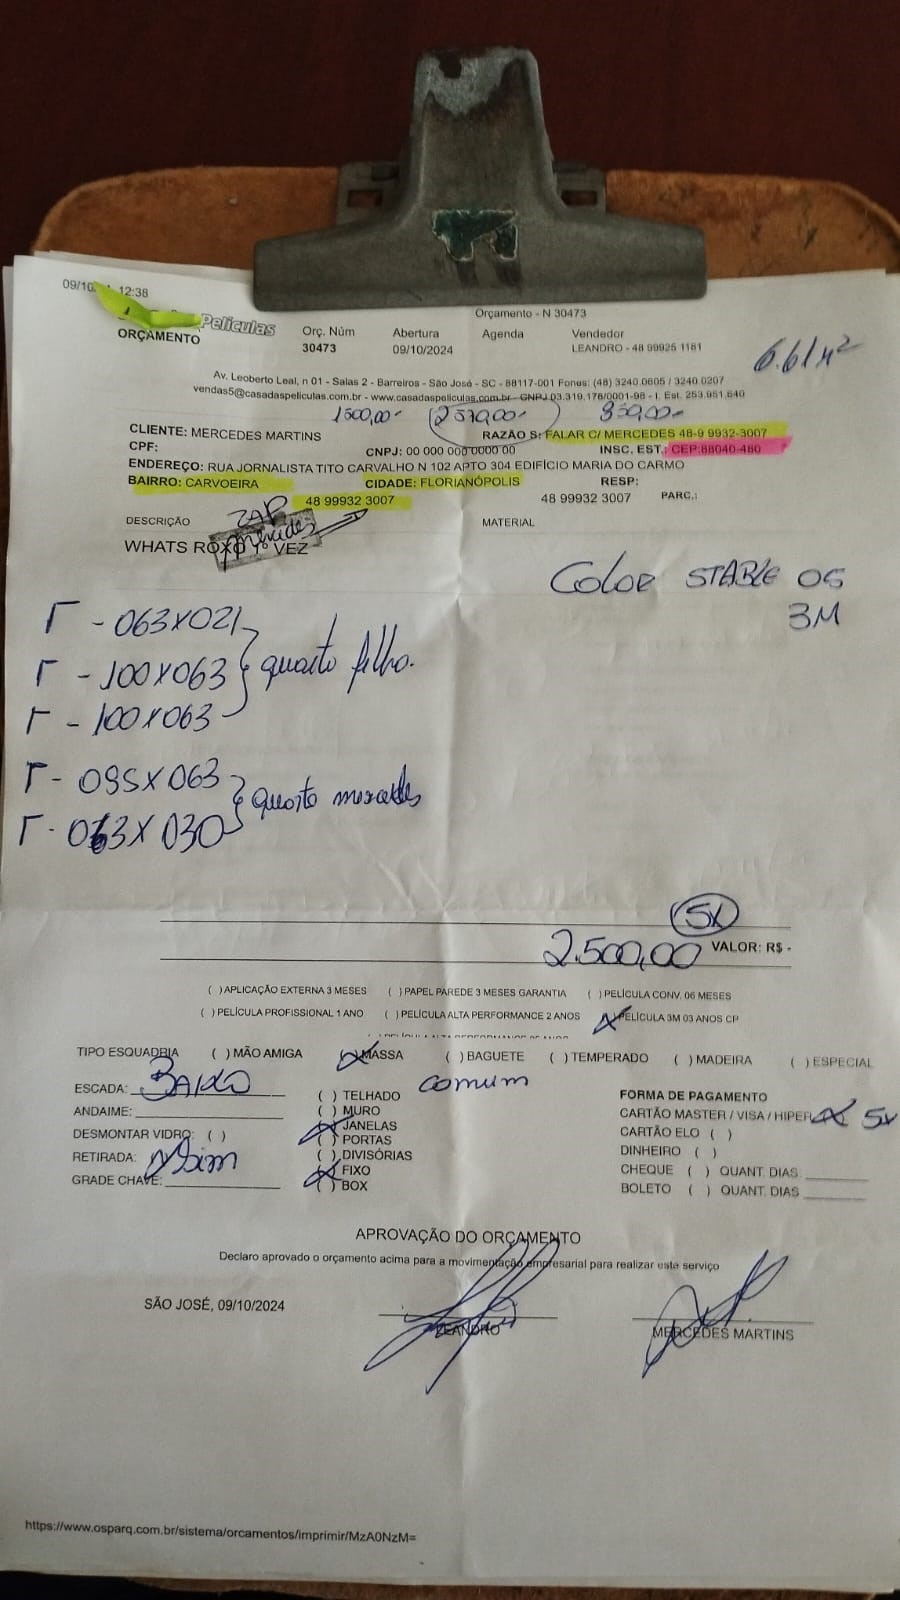 09/10 12:38
Orçamento - N 30473
Películas
ORÇAMENTO
Orç. Núm
30473
Abertura
09/10/2024
Agenda
Vendedor
LEANDRO - 48 99925 1181
6.61 M²
Av. Leoberto Leal, n 01 - Salas 2 - Barreiros - São José - SC - 88117-001 Fones: (48) 3240.0605 / 3240.0207
vendas5@casadaspeliculas.com.br - www.casadaspeliculas.com.br - CNPJ 03.319.176/0001-98 - I. Est. 253.951.640
1500,00 2570,00 850,00
CLIENTE: MERCEDES MARTINS RAZÃO S: FALAR C/ MERCEDES 48-9 9932-3007
CPF: CNPJ: 00 000 000 0000 00 INSC. EST.: CEP:88040-480
ENDEREÇO: RUA JORNALISTA TITO CARVALHO N 102 APTO 304 EDIFÍCIO MARIA DO CARMO
BAIRRO: CARVOEIRA CIDADE: FLORIANÓPOLIS RESP:
48 99932 3007 48 99932 3007 PARC.:
ZAP
DESCRIÇÃO MATERIAL
Mercedes
WHATS ROXO 1º VEZ
COLOR STABLE 05
3M
Γ - 063X021
Γ - 100X063 quarto filho.
Γ - 100X063
Γ - 095X063
quarto mercedes
Γ - 063X030
5X
2.500,00 VALOR: R$ -
( ) APLICAÇÃO EXTERNA 3 MESES ( ) PAPEL PAREDE 3 MESES GARANTIA ( ) PELÍCULA CONV. 06 MESES
( ) PELÍCULA PROFISSIONAL 1 ANO ( ) PELÍCULA ALTA PERFORMANCE 2 ANOS (X) PELÍCULA 3M 03 ANOS CP
TIPO ESQUADRIA ( ) MÃO AMIGA (X) MASSA ( ) BAGUETE ( ) TEMPERADO ( ) MADEIRA ( ) ESPECIAL
comum
ESCADA: BAIXO
ANDAIME:
DESMONTAR VIDRO: ( )
RETIRADA: Sim
GRADE CHAVE:
( ) TELHADO
( ) MURO
(X) JANELAS
( ) PORTAS
( ) DIVISÓRIAS
(X) FIXO
( ) BOX
FORMA DE PAGAMENTO
CARTÃO MASTER / VISA / HIPER (X) 5X
CARTÃO ELO ( )
DINHEIRO ( )
CHEQUE ( ) QUANT. DIAS
BOLETO ( ) QUANT. DIAS
APROVAÇÃO DO ORÇAMENTO
Declaro aprovado o orçamento acima para a movimentação empresarial para realizar este serviço
SÃO JOSÉ, 09/10/2024
LEANDRO
MERCEDES MARTINS
https://www.osparq.com.br/sistema/orcamentos/imprimir/MzA0NzM=